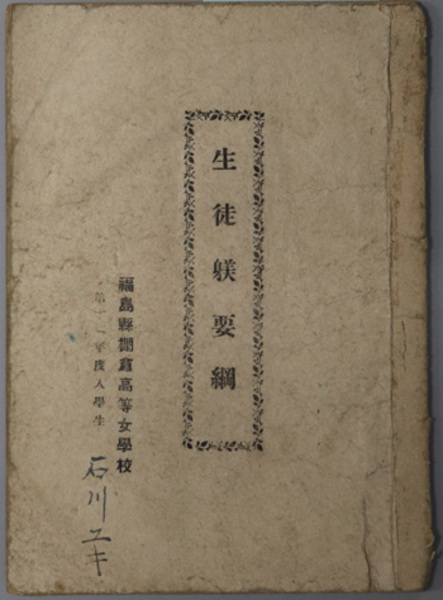 生徒躾要綱
福島縣棚倉高等女學校
第二年度入學生
石川ユキ